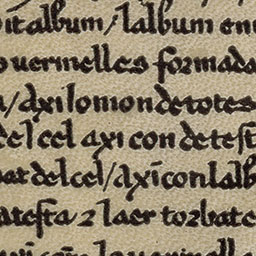 it album / lalbum en
vermelles formada
a / axi lo mon de totes
del cel axi con de test
at del cel / Axi con lalb
atesta 7 laer torbate